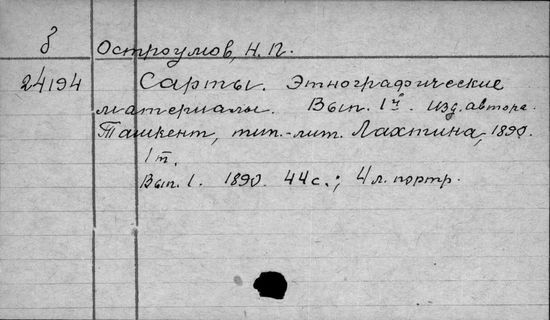 З
Остроумов, Н. П.
24194
Сарты. Этнографические
материалы. Вып. 1й. изд. автора.
Ташкент, тип.-лит. Лахтина, 1890.
1 т.
Вып. 1. 1890. 44 с.; 4 л. портр.